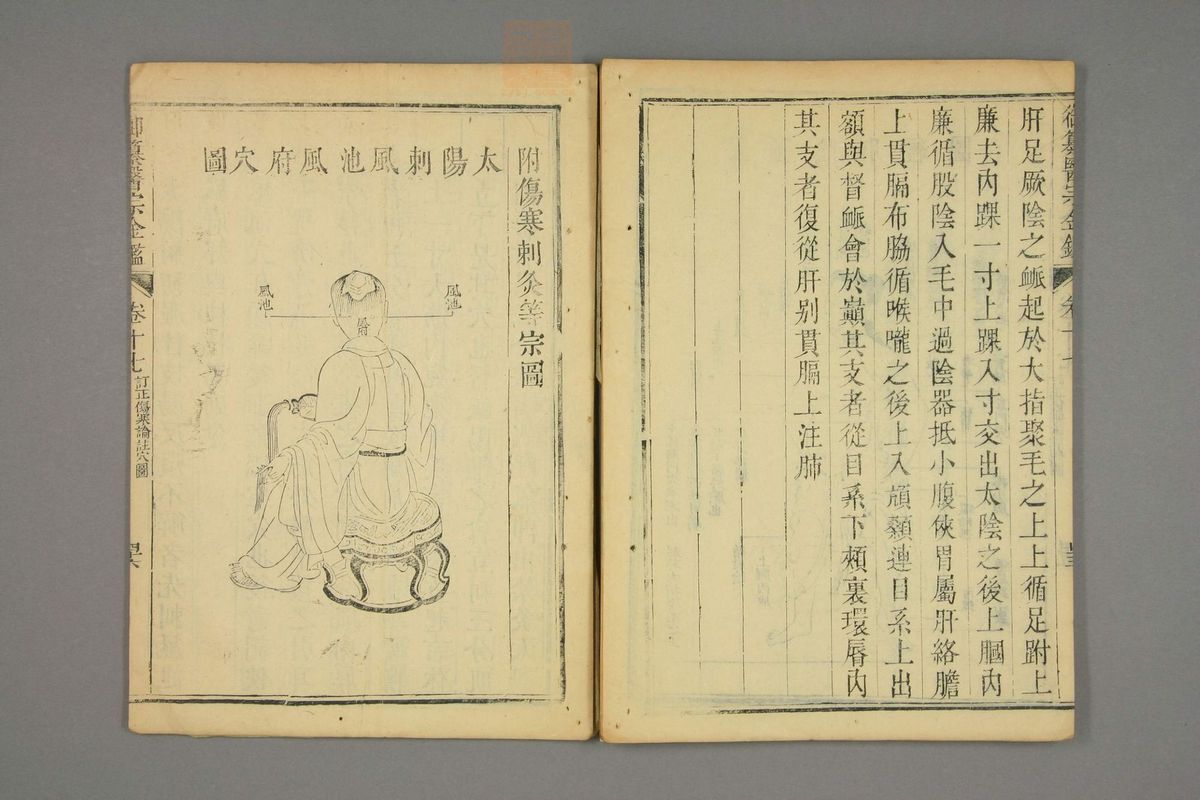 肝足厥陰之脈起於大指聚毛之上上循足跗上
廉去內踝一寸上踝入寸交出太陰之後上膕內
廉循股陰入毛中過陰器抵小腹俠胃屬肝絡膽
上貫膈布脇循喉嚨之後上入頏顙連目系上出
額與督脈會於巔其支者從目系下頰裏環唇內
其支者復從肝别貫膈上注肺
附傷寒刺灸等宗圖
太陽刺風池風府穴圖
風池
風池
御纂醫宗金鑑
卷十七
訂正傷寒論註穴圖